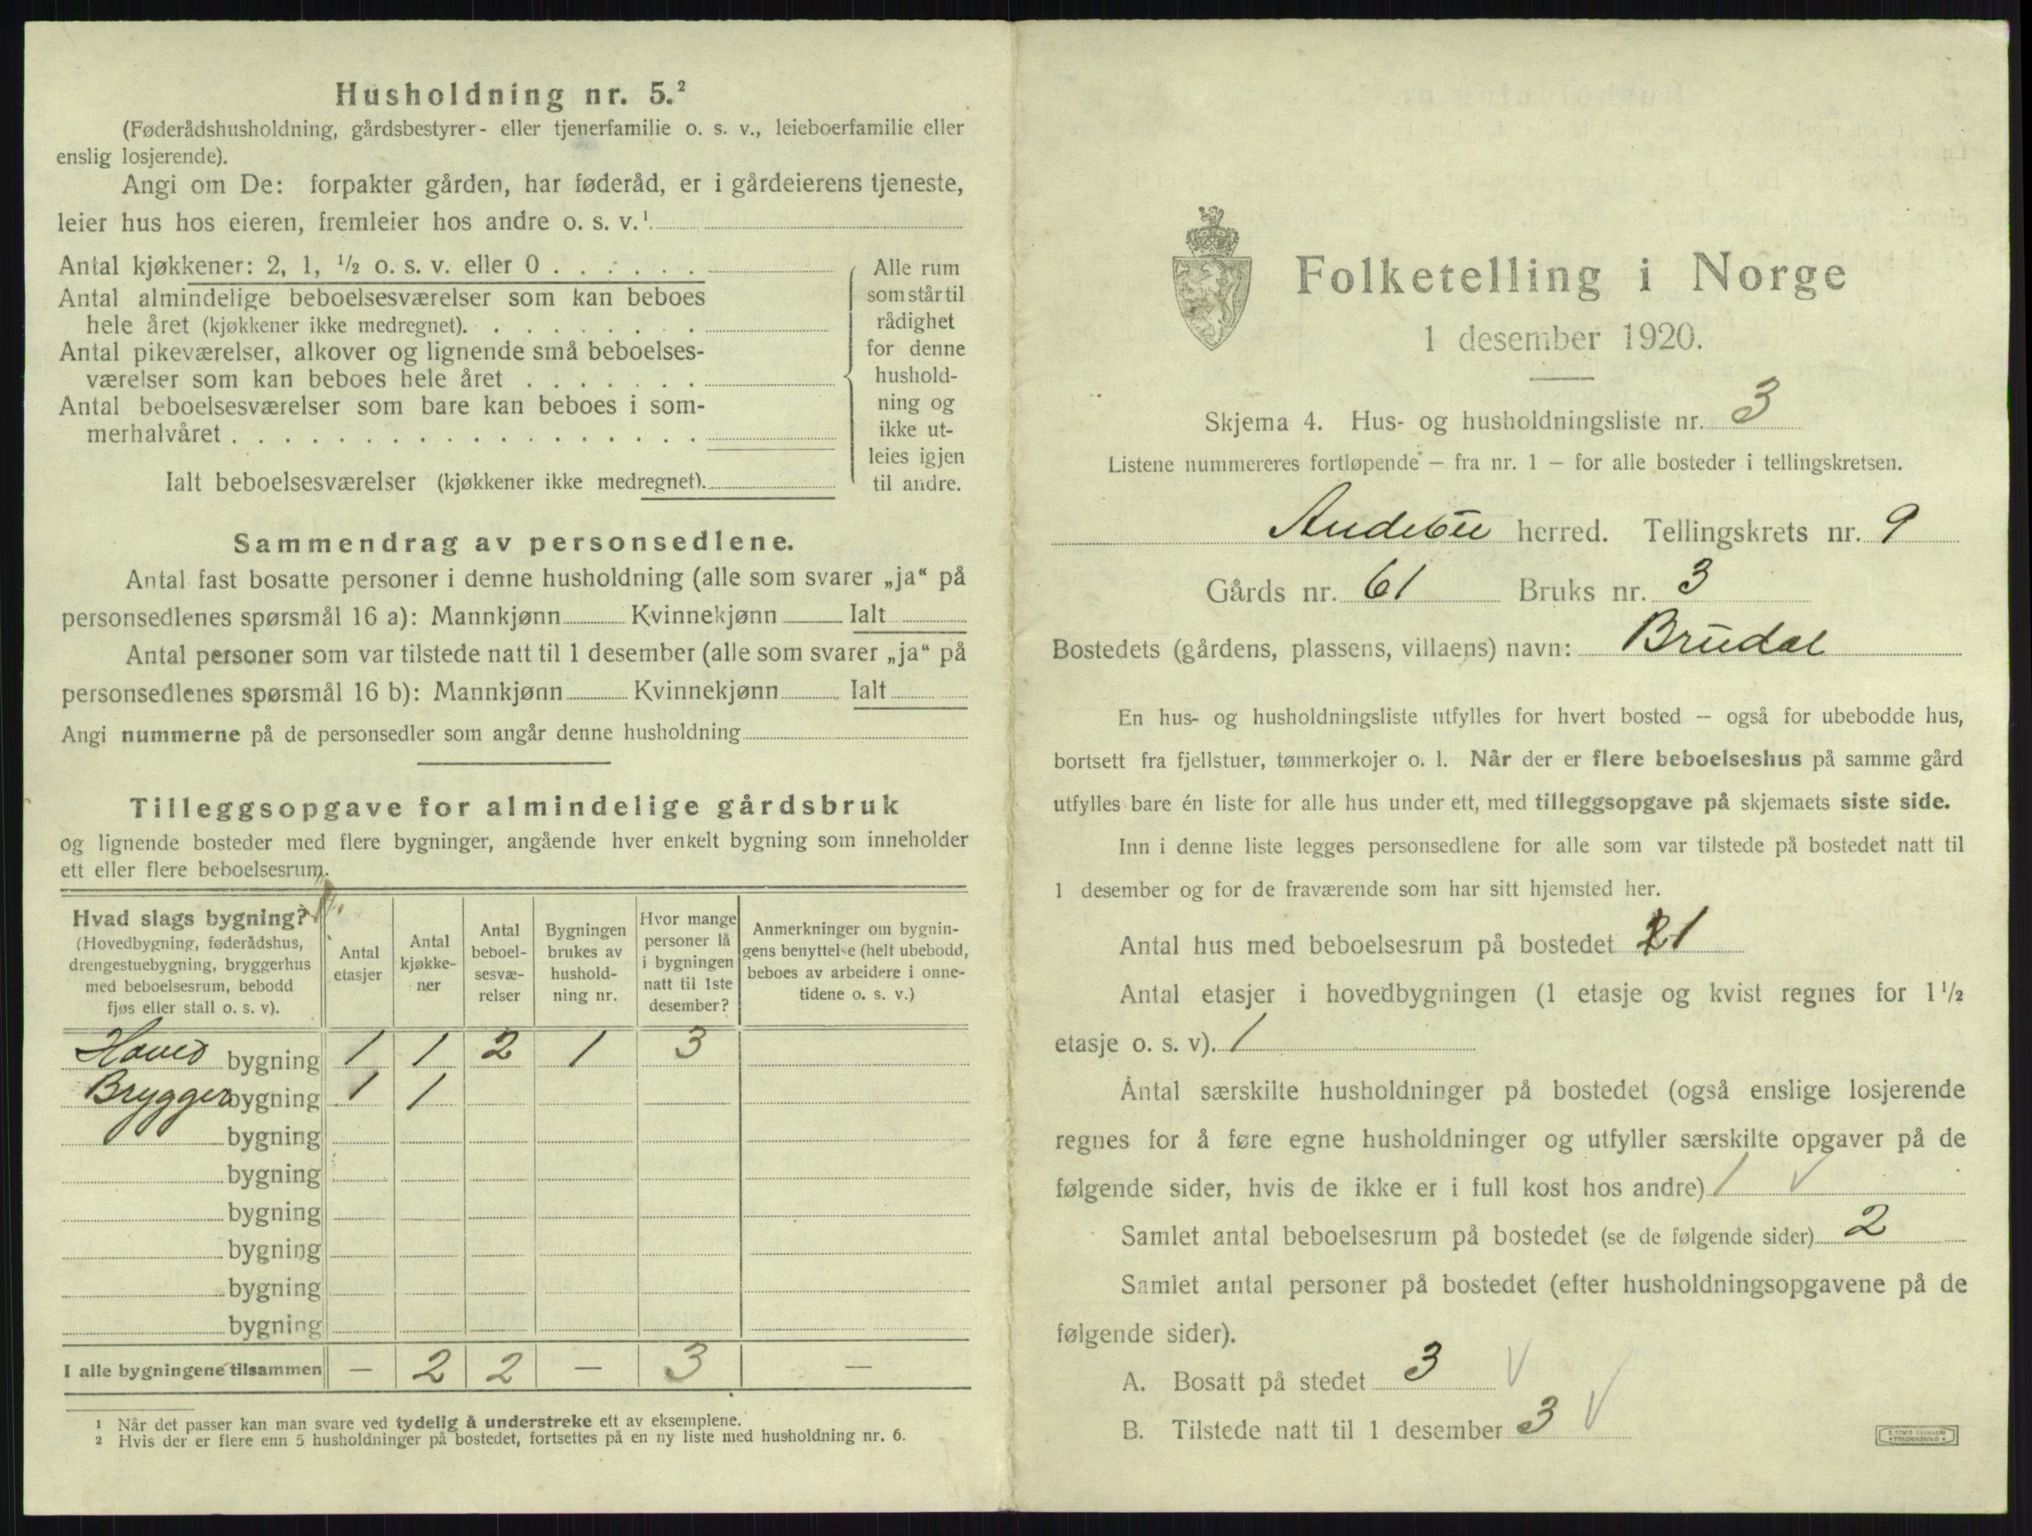 Husholdning nr. 5.²
(Føderådshusholdning, gårdsbestyrer- eller tjenerfamilie o. s. v., leieboerfamilie eller
enslig losjerende).
Angi om De: forpakter gården, har føderåd, er i gårdeierens tjeneste,
leier hus hos eieren, fremleier hos andre o. s. v.¹
Antal kjøkkener: 2, 1, ½ o. s. v. eller 0 . . . . . .
Antal almindelige beboelsesværelser som kan beboes
hele året (kjøkkener ikke medregnet). . . . . . . . .
Antal pikeværelser, alkover og lignende små beboelses-
værelser som kan beboes hele året . . . . . . .
Antal beboelsesværelser som bare kan beboes i som-
merhalvåret . . . . . . . . . . . . . . . . . .
Ialt beboelsesværelser (kjøkkener ikke medregnet).
Alle rum
som står til
rådighet
for denne
hushold-
ning og
ikke ut-
leies igjen
til andre.
Sammendrag av personsedlene.
Antal fast bosatte personer i denne husholdning (alle som svarer „ja“ på
personsedlenes spørsmål 16 a): Mannkjønn Kvinnekjønn Ialt
Antal personer som var tilstede natt til 1 desember (alle som svarer „ja“ på
personsedlenes spørsmål 16 b): Mannkjønn Kvinnekjønn Ialt
Angi nummerne på de personsedler som angår denne husholdning
Tilleggsopgave for almindelige gårdsbruk
og lignende bosteder med flere bygninger, angående hver enkelt bygning som inneholder
ett eller flere beboelsesrum.
Hvad slags bygning?
(Hovedbygning, føderådshus,
drengestuebygning, bryggerhus
med beboelsesrum, bebodd
fjøs eller stall o. s. v).
Antal
etasjer
Antal
kjøkke-
ner
Antal
beboel-
sesvæ-
relser
Bygningen
brukes av
hushold-
ning nr.
Hvor mange
personer lå
i bygningen
natt til 1ste
desember?
Anmerkninger om bygnin-
gens benyttelse (helt ubebodd,
beboes av arbeidere i onne-
tidene o. s. v.)
Hoved bygning 1 1 2 1 3
Brygger bygning 1 1
bygning
bygning
bygning
bygning
bygning
bygning
I alle bygningene tilsammen — 2 2 — 3 —
¹ Når det passer kan man svare ved tydelig å understreke ett av eksemplene.
² Hvis der er flere enn 5 husholdninger på bostedet, fortsettes på en ny liste med husholdning nr. 6.
Folketelling i Norge
1 desember 1920.
Skjema 4. Hus- og husholdningsliste nr. 3
Listene nummereres fortløpende – fra nr. 1 – for alle bosteder i tellingskretsen.
Andebu herred. Tellingskrets nr. 9
Gårds nr. 61 Bruks nr. 3
Bostedets (gårdens, plassens, villaens) navn: Brudal
En hus- og husholdningsliste utfylles for hvert bosted – også for ubebodde hus,
bortsett fra fjellstuer, tømmerkojer o. l. Når der er flere beboelseshus på samme gård
utfylles bare én liste for alle hus under ett, med tilleggsopgave på skjemaets siste side.
Inn i denne liste legges personsedlene for alle som var tilstede på bostedet natt til
1 desember og for de fraværende som har sitt hjemsted her.
Antal hus med beboelsesrum på bostedet 1
Antal etasjer i hovedbygningen (1 etasje og kvist regnes for 1½
etasje o. s. v). 1
Antal særskilte husholdninger på bostedet (også enslige losjerende
regnes for å føre egne husholdninger og utfyller særskilte opgaver på de
følgende sider, hvis de ikke er i full kost hos andre) 1 ✓
Samlet antal beboelsesrum på bostedet (se de følgende sider) 2
Samlet antal personer på bostedet (efter husholdningsopgavene på de
følgende sider).
A. Bosatt på stedet 3 ✓
B. Tilstede natt til 1 desember 3 ✓